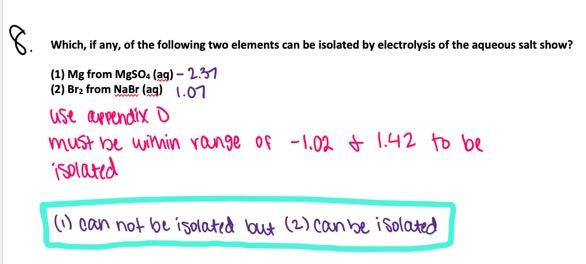 8. Which, if any, of the following two elements can be isolated by electrolysis of the aqueous salt show?
(1) Mg from MgSO₄ (aq) - 2.37
(2) Br₂ from NaBr (aq) 1.07
use appendix D
must be within range of -1.02 & 1.42 to be
isolated
(1) can not be isolated but (2) can be isolated